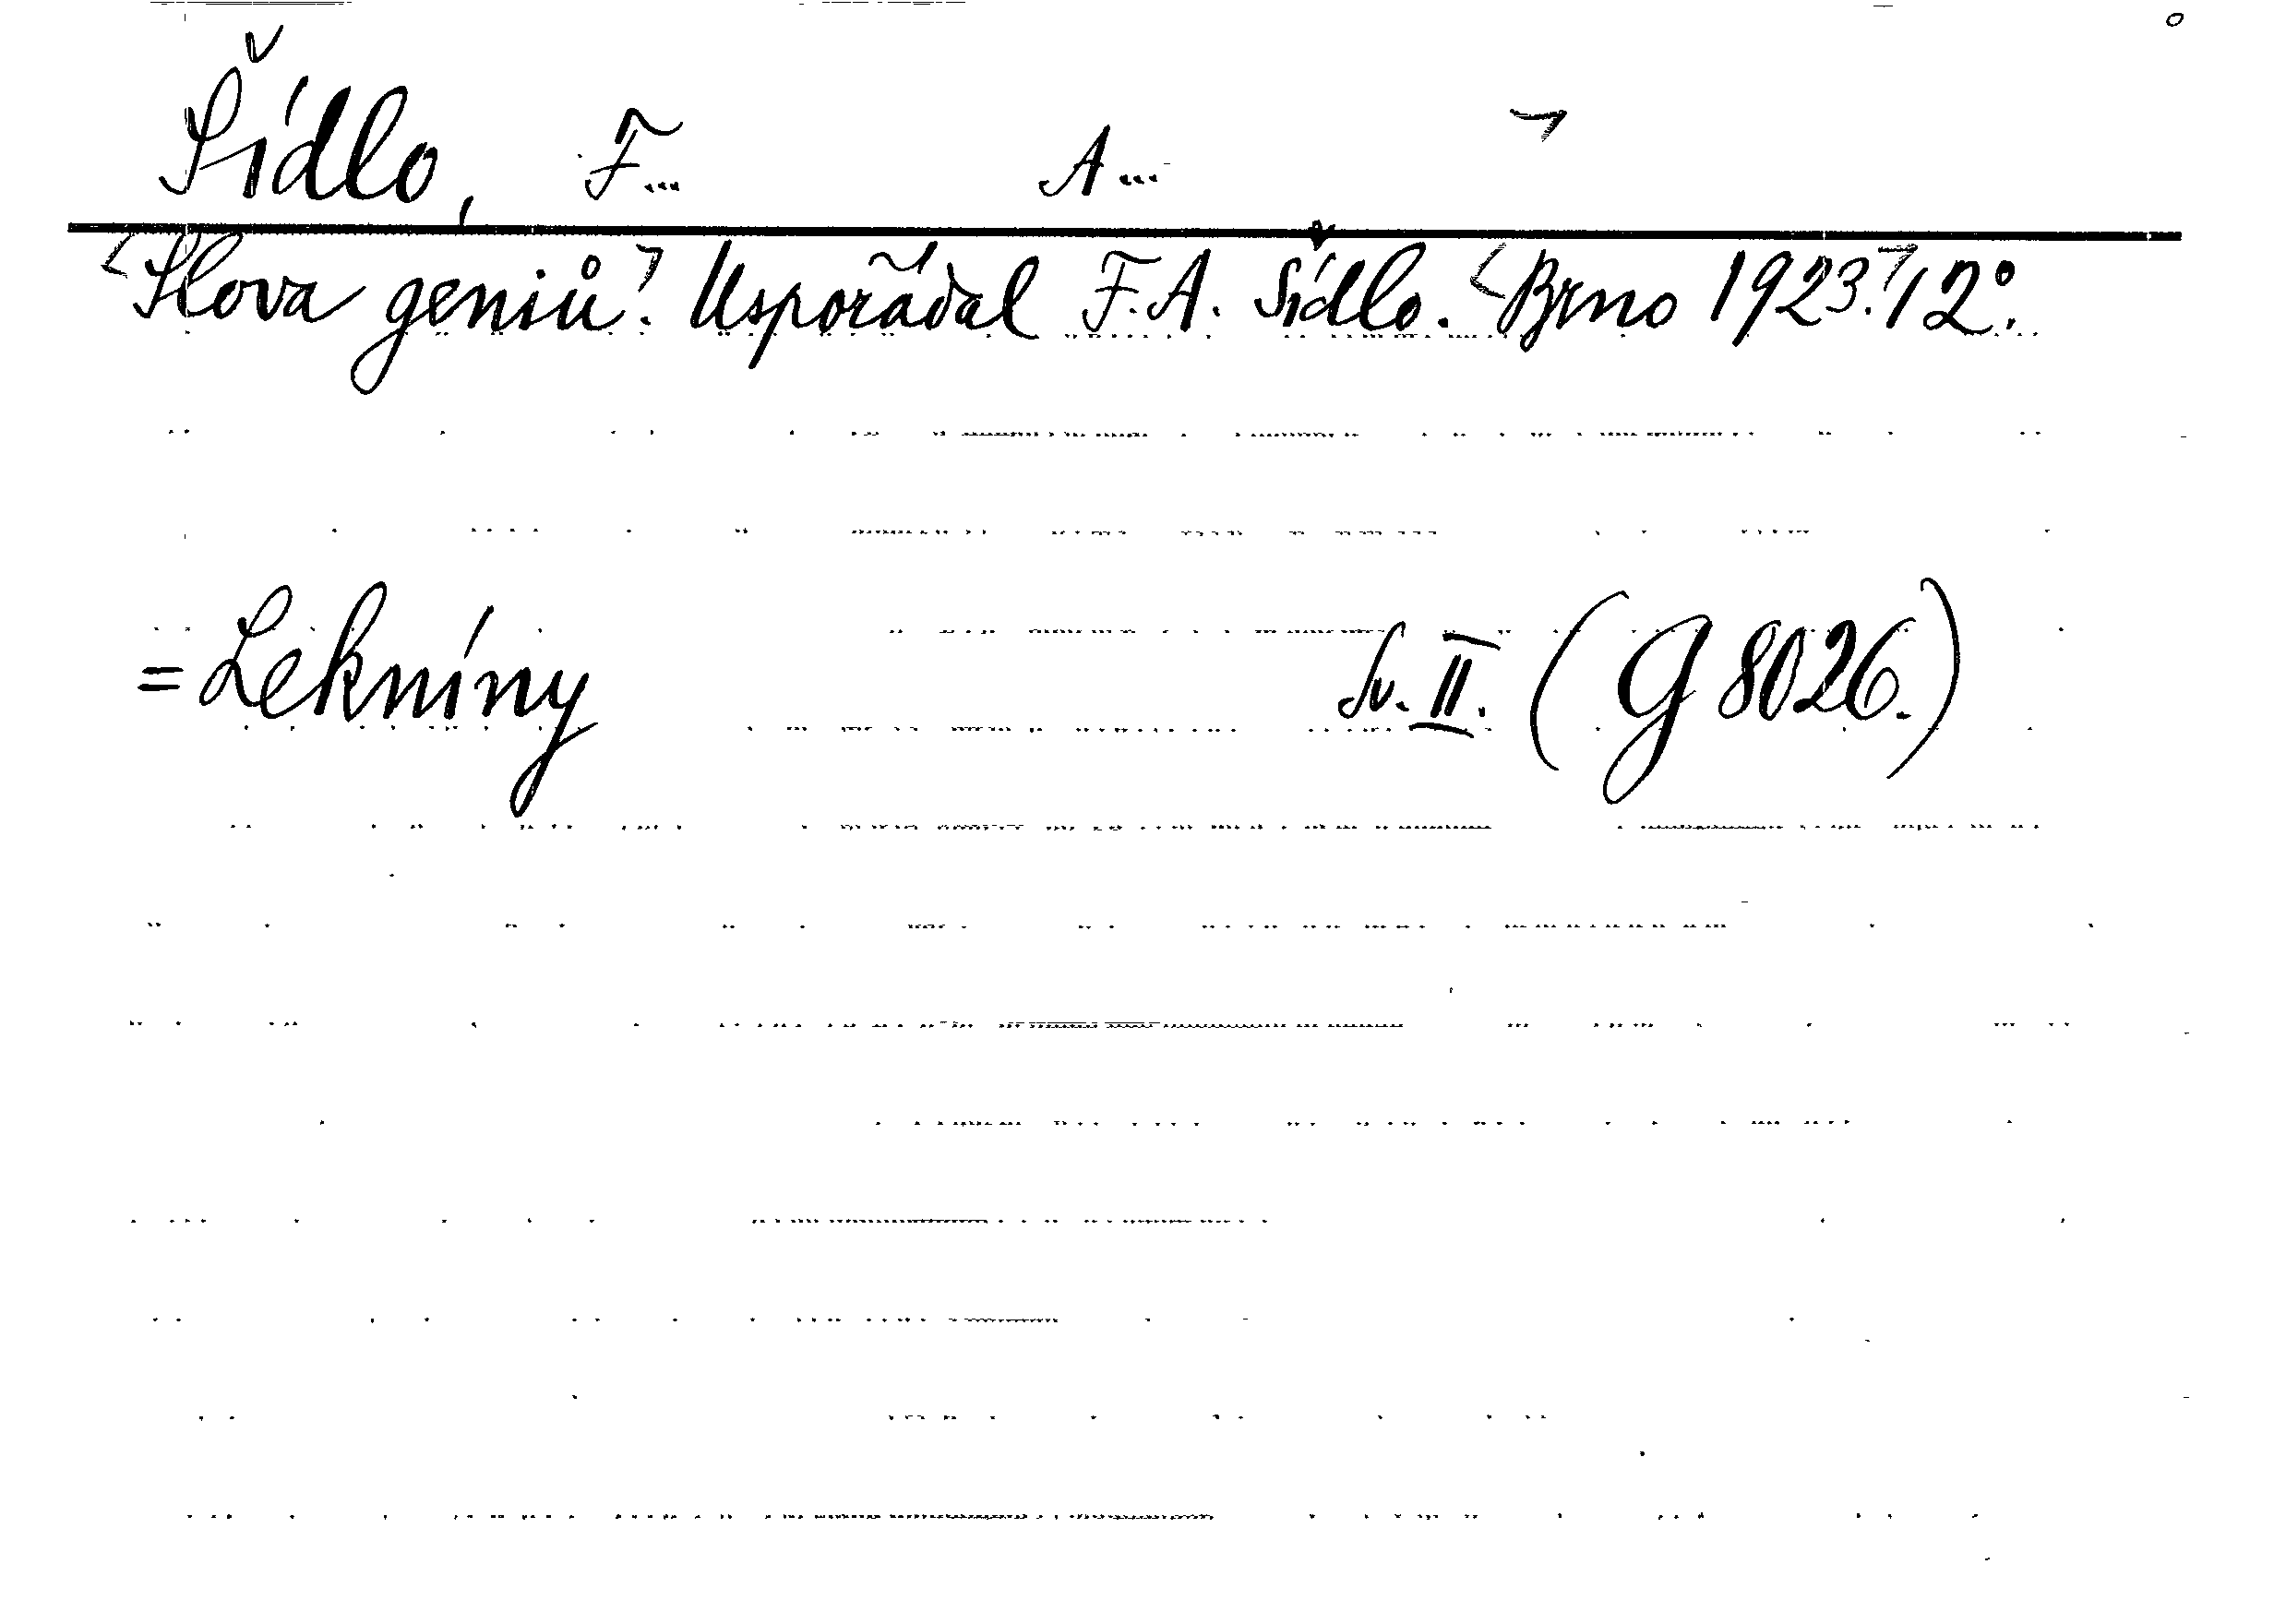 Šídlo, F... A...
Slova geniů. Uspořádal F. A. Šídlo. Brno 1923. 12°.
= Lekníny Sv. II. (G 8026.)